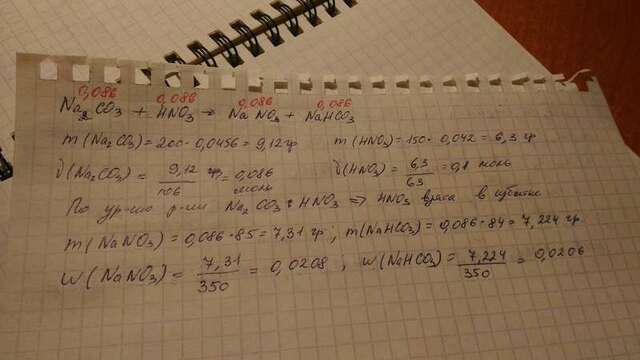 0,086 0,086 0,086 0,086
Na2CO3 + HNO3 → NaNO3 + NaHCO3
m(Na2CO3) = 200 · 0,0456 = 9,12 гр m(HNO3) = 150 · 0,042 = 6,3 гр
ν(Na2CO3) = 9,12 гр / 106 = 0,086 моль ν(HNO3) = 6,3 / 63 = 0,1 моль
По ур-ию р-ии Na2CO3 : HNO3 => HNO3 взята в избытке
m(NaNO3) = 0,086 · 85 = 7,31 гр ; m(NaHCO3) = 0,086 · 84 = 7,224 гр.
w(NaNO3) = 7,31 / 350 = 0,0208 ; w(NaHCO3) = 7,224 / 350 = 0,0206